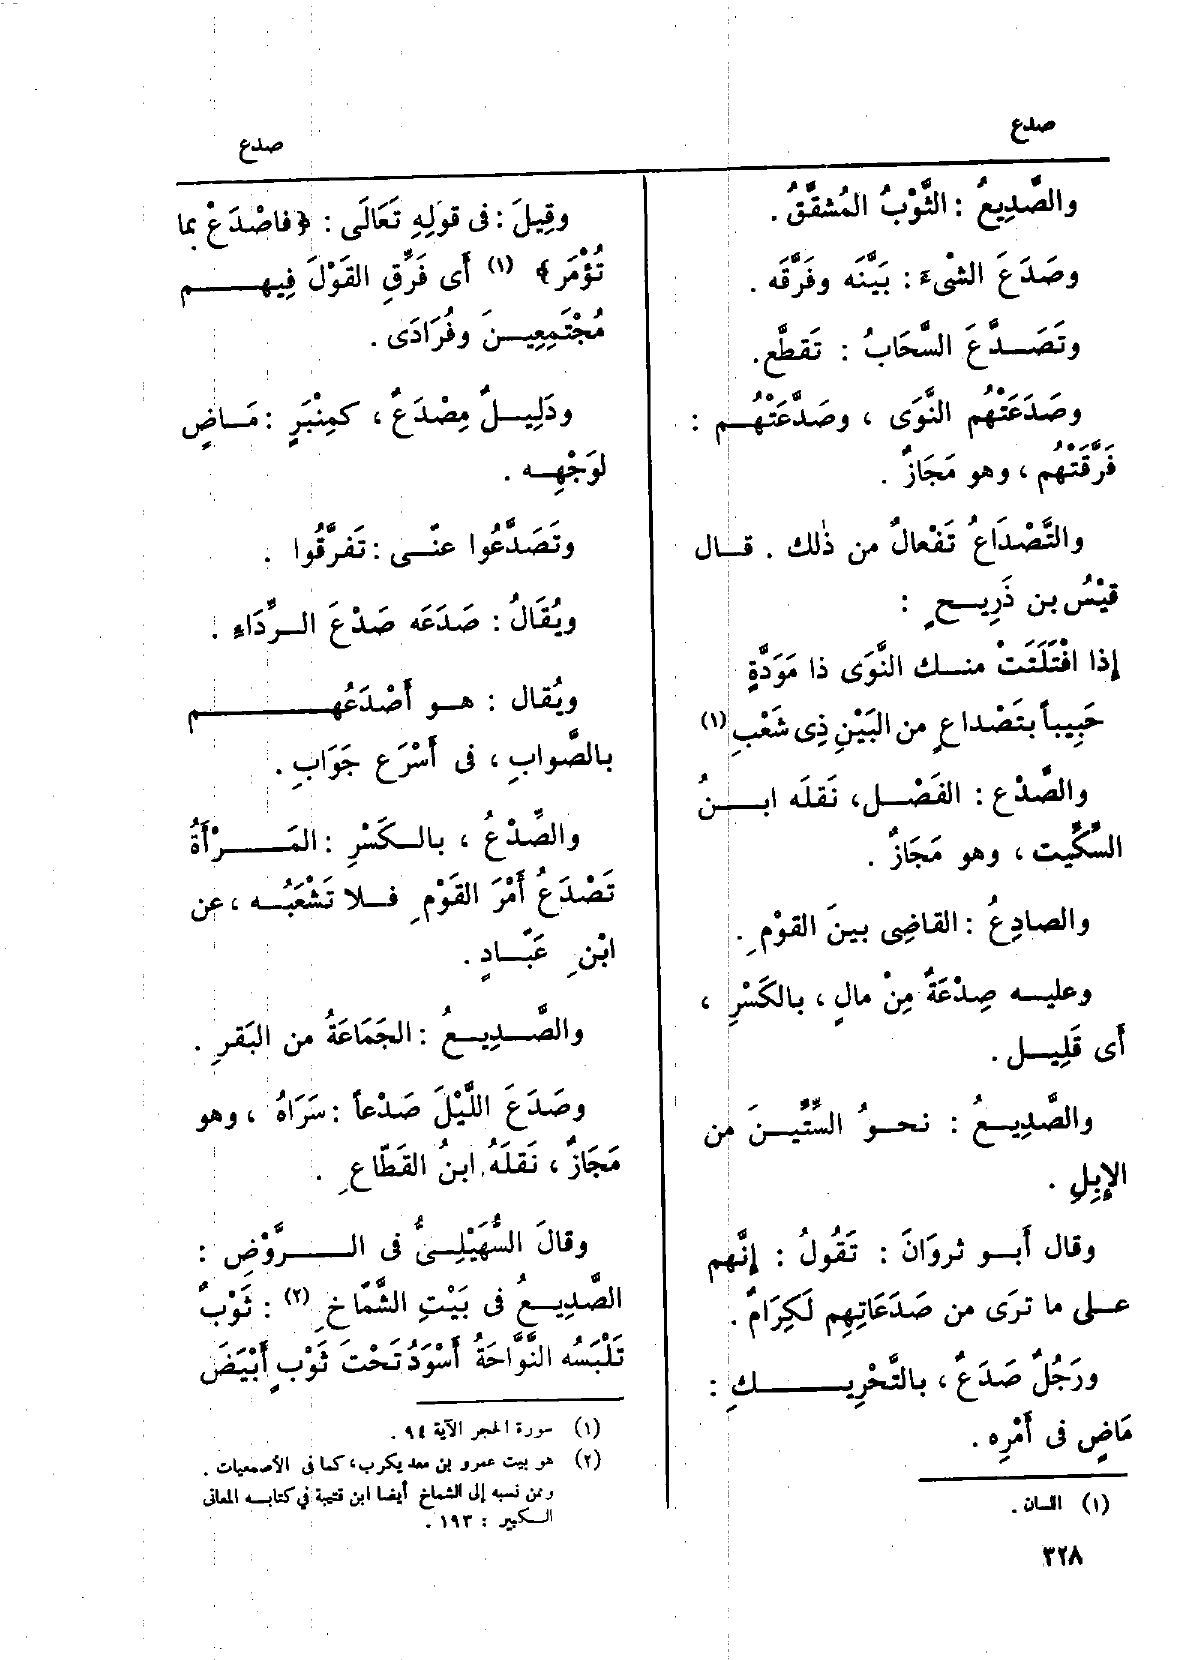 صدع
والصَّدِيعُ : الثَّوْبُ المُشقَّقُ .
وصَدَعَ الشْىءَ : بَيَّنَه وفَرَّقَه .
وتَصَدَّعَ السَّحَابُ : تَقطَّع .
وصَدَعَتْهُم النَّوَى ، وصَدَّعَتْهُم :
فَرَّقَتْهُم ، وهو مَجَازٌ .
والتَّصْدَاعُ تَفْعالٌ من ذٰلك . قال
قَيْسُ بن ذَرِيحٍ :
إذا افْتَلَتَتْ منك النَّوَى ذا مَوَدَّةٍ
حَبِيباً بتَصْداعٍ من البَيْنِ ذِى شَعْبِ (١)
والصَّدْع : الفَصْل ، نَقلَه ابنُ
السِّكِّيت ، وهو مَجَازٌ .
والصادِعُ : القاضِى بينَ القوْمِ .
وعليه صِدْعَةٌ مِنْ مالٍ ، بالكَسْرِ ،
أى قَلِيل .
والصَّدِيعُ : نحوُ السِّتِّينَ من
الإِبِلِ .
وقال أَبو ثروَانَ : تَقُولُ : إنَّهم
على ما ترَى من صَدَعَاتِهِم لَكِرَامٌ .
ورَجُلٌ صَدَعٌ ، بالتَّحْرِيكِ :
مَاضٍ فى أَمْرِه .
(١) اللسان .
٣٢٨
صدع
وقِيلَ : فى قولِهِ تَعَالَى : ﴿ فاصْدَعْ بما
تُؤْمَر ﴾ (١) أَى فَرِّقِ القَوْلَ فِيهم
مُجْتَمِعِينَ وفُرَادَى .
ودَلِيلٌ مِصْدَعٌ ، كمِنْبَرٍ : مَاضٍ
لوَجْهِه .
وتَصَدَّعُوا عنِّى : تَفرَّقُوا .
ويُقَالُ : صَدَعَه صَدْعَ الرِّدَاءِ .
ويُقال : هو أَصْدَعُهم
بالصَّوابِ ، فى أَسْرَع جَوَابِ .
والصِّدْعُ ، بالكَسْرِ : المَرْأَةُ
تَصْدَعُ أَمْرَ القَوْمِ فلا تَشْعَبُه ، عن
ابْنِ عَبَّادٍ .
والصَّدِيعُ : الجَمَاعَةُ من البَقرِ .
وصَدَعَ اللَّيْلَ صَدْعاً : سَرَاهُ ، وهو
مَجَازٌ ، نَقلَهُ ابنُ القَطّاعِ .
وقالَ السُّهَيْلِىُّ فى الرَّوْضِ :
الصَّدِيعُ فى بَيْتِ الشَّمّاخِ (٢) : ثَوْبٌ
تَلْبَسُه النَّوَّاحَةُ أَسْوَدُ تَحْتَ ثَوْبٍ أَبْيَضَ
(١) سورة الحجر الآية ٩٤ .
(٢) هو بيت عمرو بن معد يكرب ، كما فى الأصمعيات .
وممن نسبه إلى الشماخ أيضا ابن قتيبة في كتابه المعانى
الكبير : ١٩٣ .